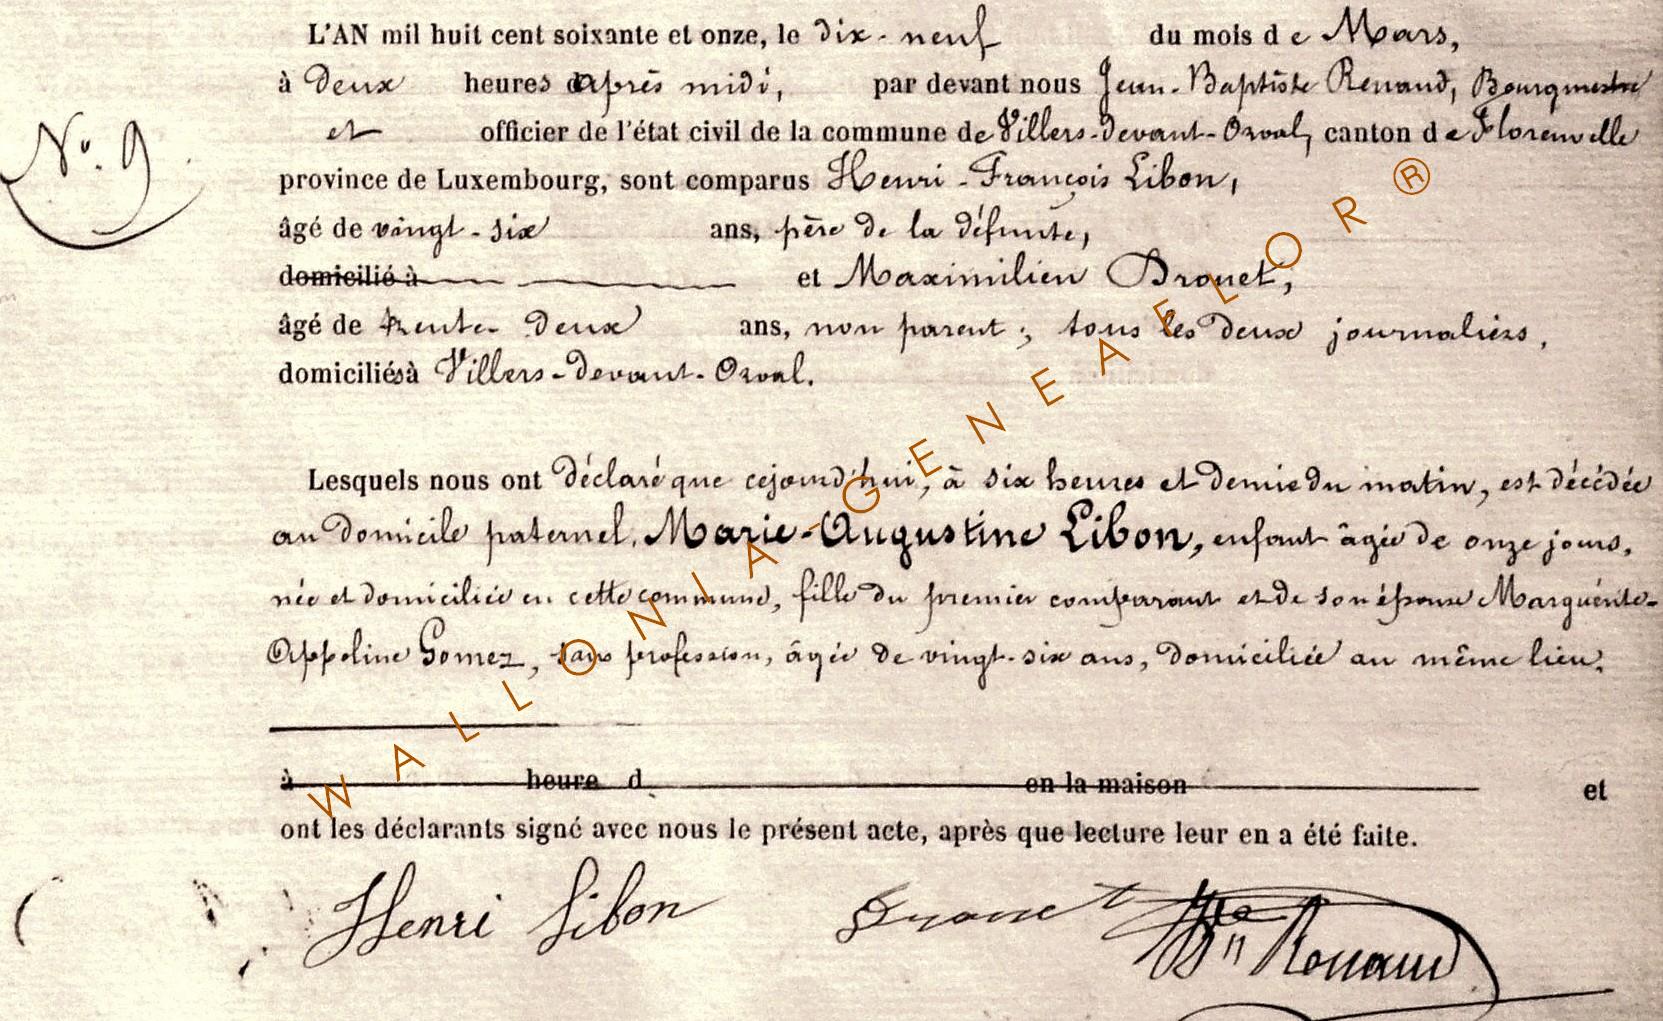 L'AN mil huit cent soixante et onze, le dix-neuf du mois de Mars,
à deux heures après midi, par devant nous Jean-Baptiste Renaud, Bourgmestre
No. 9
et officier de l'état civil de la commune de Villers-devant-Orval, canton de Florenville
province de Luxembourg, sont comparus Henri-François Libon,
âgé de vingt-six ans, père de la défunte,
domicilié à et Maximilien Drouet,
âgé de trente-deux ans, non parent; tous les deux journaliers,
domiciliés à Villers-devant-Orval.
Lesquels nous ont déclaré que cejourd'hui, à six heures et demie du matin, est décédée
au domicile paternel, Marie-Augustine Libon, enfant âgée de onze jours,
née et domiciliée en cette commune, fille du premier comparant et de son épouse Marguérite-
Appoline Gomez, sans profession, âgée de vingt-six ans, domiciliée au même lieu.
à heure d en la maison et
ont les déclarants signé avec nous le présent acte, après que lecture leur en a été faite.
Henri Libon Drouet Renaud
WALLONIA-GENEAELOR®